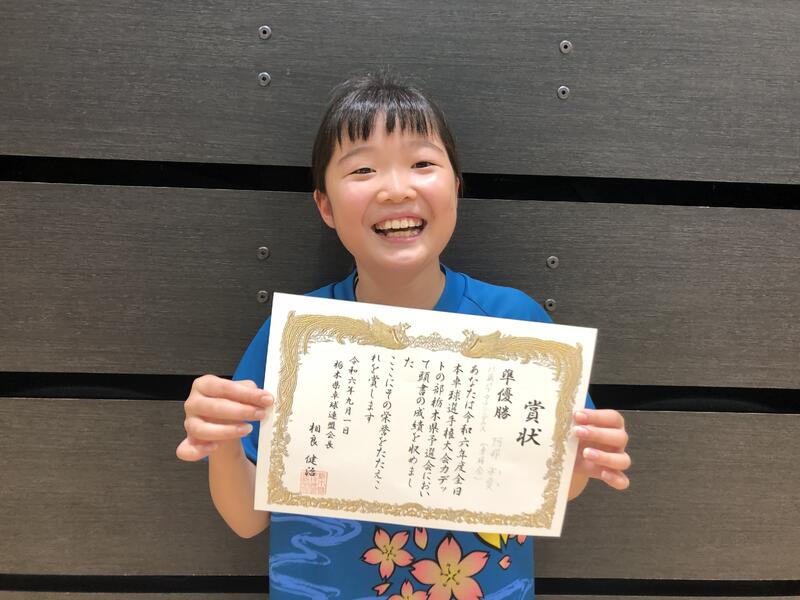 賞状
準優勝
あなたは令和六年度全日
本卓球選手権大会カデッ
トの部栃木県予選会におい
て頭書の成績を収めまし
た
ここにその栄誉をたたえこ
れを賞します
令和六年九月一日
栃木県卓球連盟会長
相良 健治